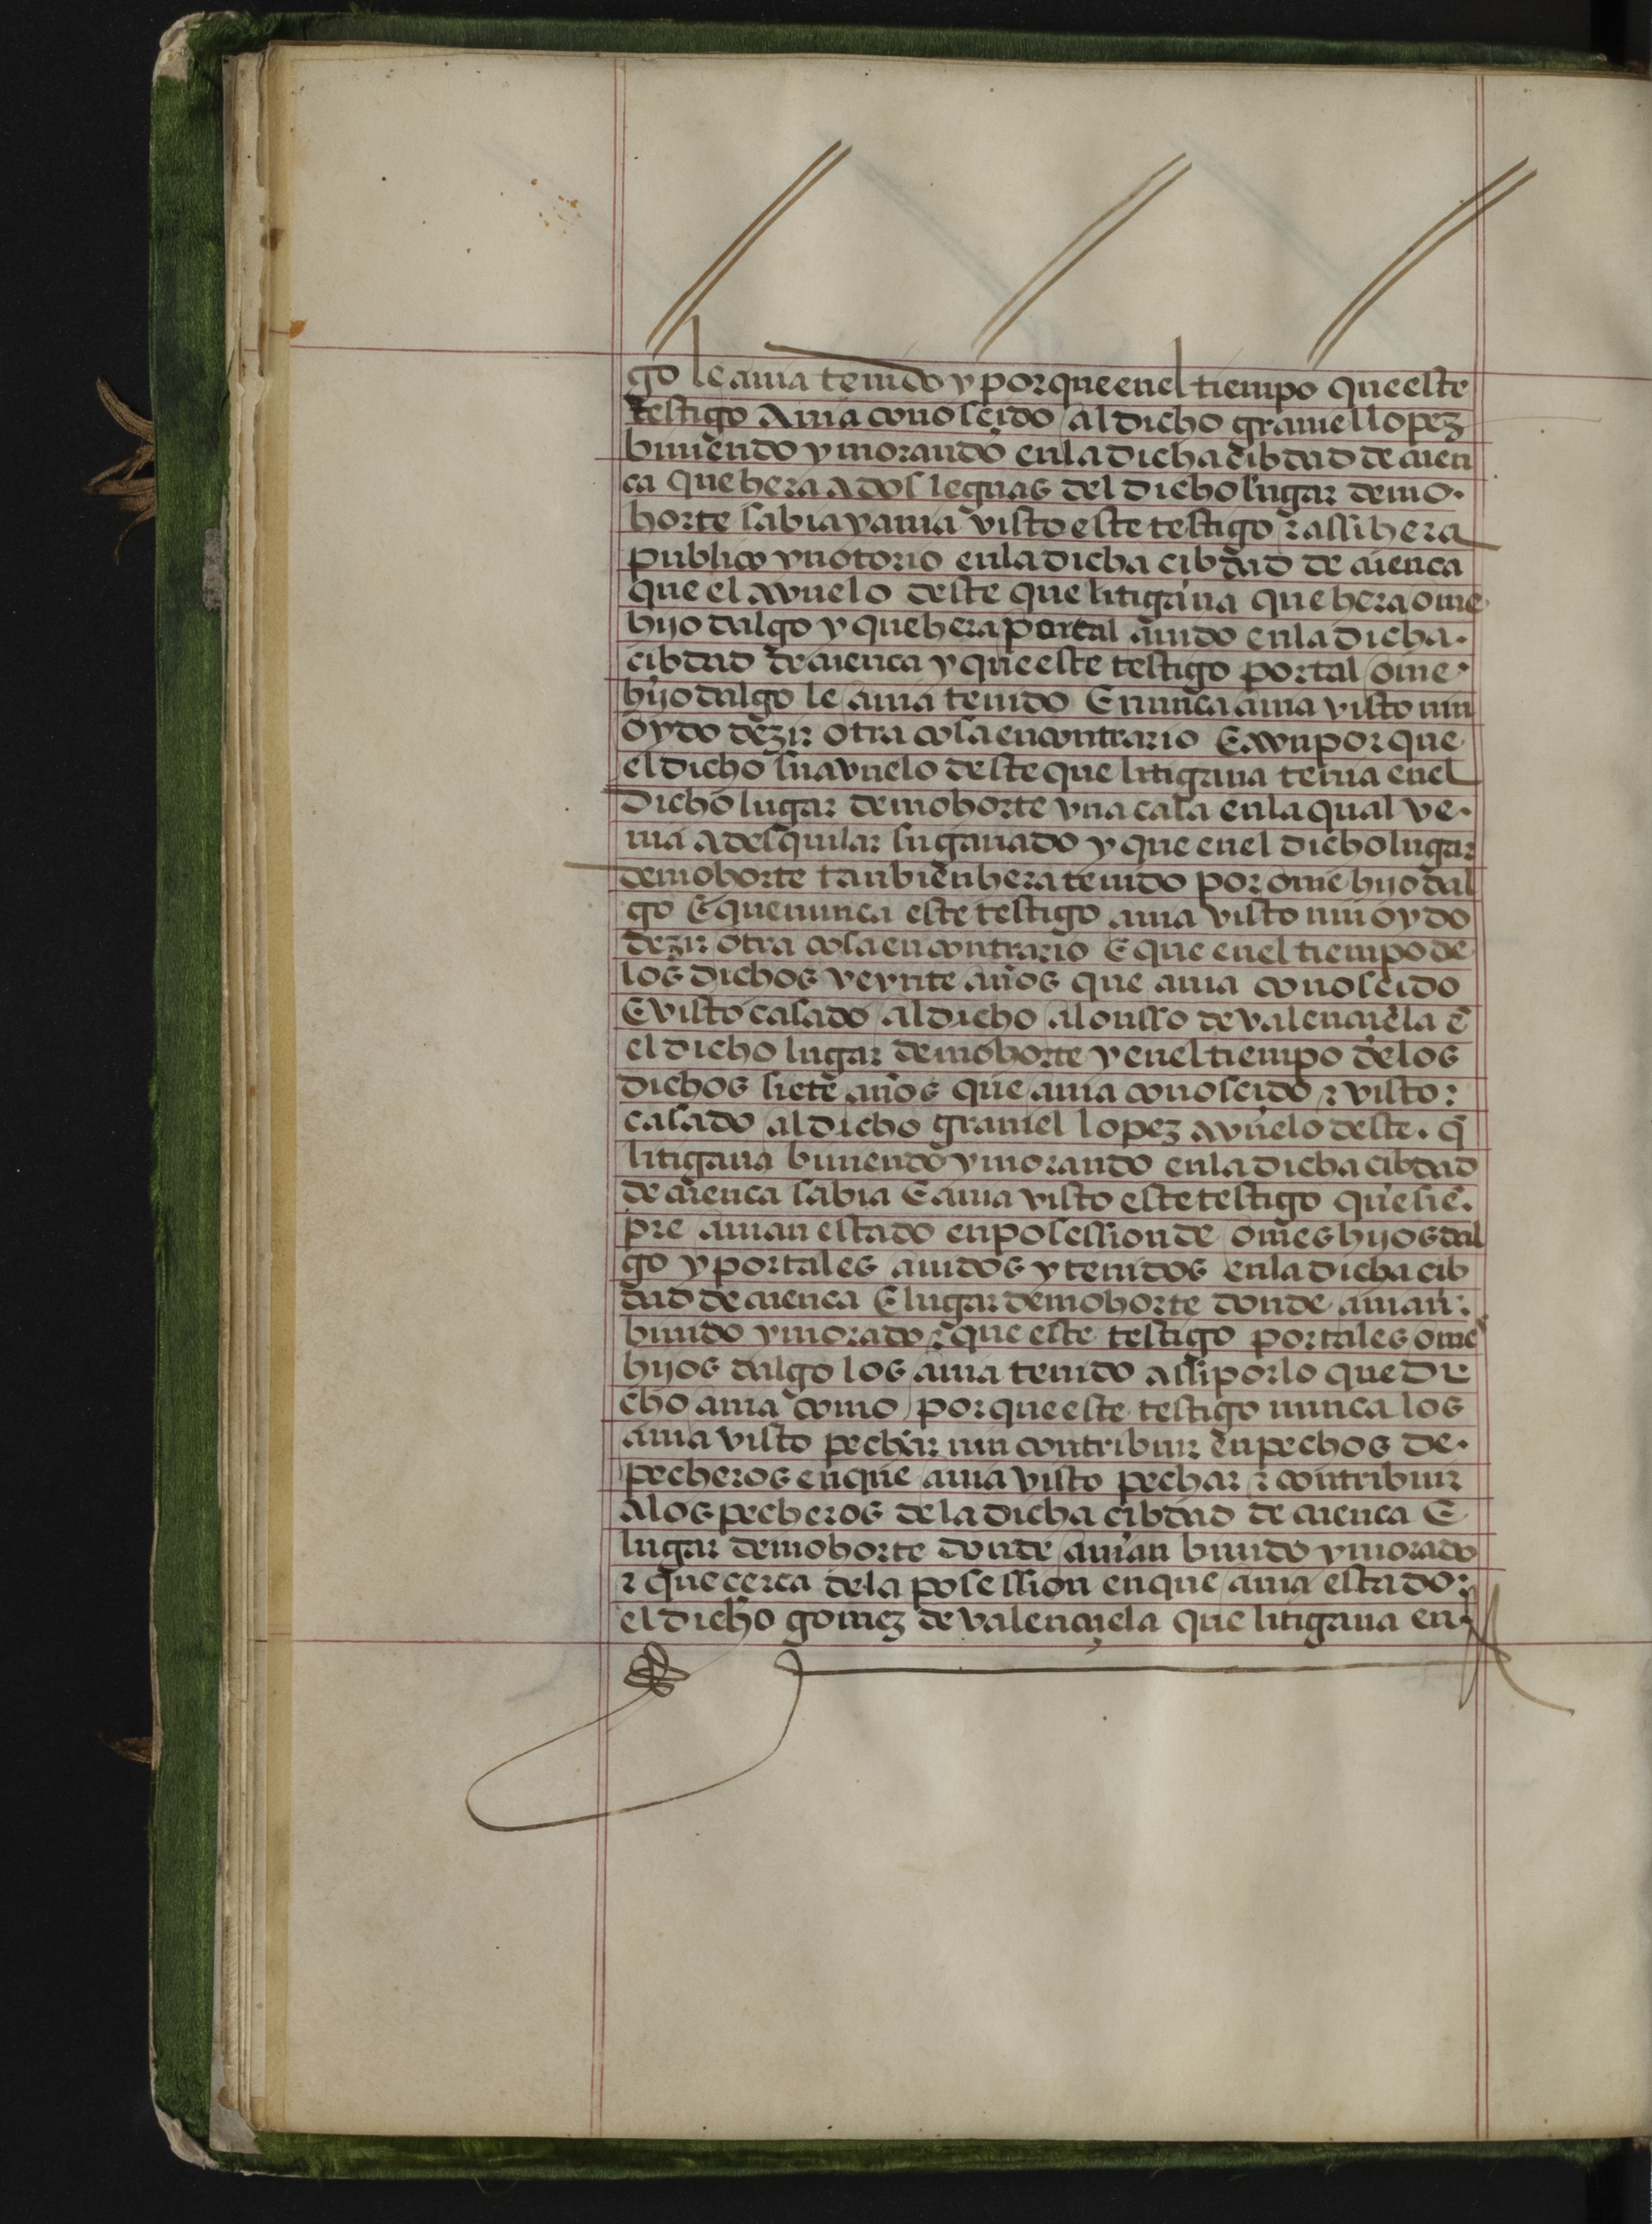 go le auia tenido y por que en el tiempo que este
testigo Auia conoscido al dicho grauiel lopez
biuiendo y morando en la dicha cibdad de cuen
ca que hera a dos leguas del dicho lugar de mo.
horte sabia y auia visto este testigo ꝛ assi hera
publico y notorio en la dicha cibdad de cuenca
que el avuelo deste que litigaua que hera ome
hijo dalgo y que hera por tal auido en la dicha.
cibdad de cuenca y que este testigo por tal ome
hijo dalgo le auia tenido E nunca auia visto nin
oydo dezir otra cosa en contrario E avn por que
el dicho su avuelo deste que litigaua tenia en el
dicho lugar de mohorte vna casa en la qual ve.
nia a desquilar su ganado y que en el dicho lugar
de mohorte tanbien hera tenido por ome hijo dal
go E que nunca este testigo auia visto nin oydo
dezir otra cosa en contrario E que en el tiempo de
los dichos veynte años que auia conoscido
E visto casado al dicho alonsso de valençuela ē
el dicho lugar de mohorte y en el tiempo de los
dichos siete años que auia conoscido ꝛ visto:
casado al dicho grauiel lopez avuelo deste. q̄
litigaua biuiendo y morando en la dicha cibdad
de cuenca sabia E auia visto este testigo que siē.
pre auian estado en posession de omes hijos dal
go y por tales auidos y tenidos en la dicha cib
dad de cuenca E lugar de mohorte donde auian:
biuido y morado ꝛ que este testigo por tales omes
hijos dalgo los auia tenido assi por lo que di
cho auia como por que este testigo nunca los
auia visto pechar nin contribuir en pechos de.
pecheros en que auia visto pechar ꝛ contribuir
a los pecheros de la dicha cibdad de cuenca E
lugar de mohorte donde auian biuido y morado
ꝛ que cerca de la posession en que auia estado:
el dicho gomez de valençuela que litigaua en